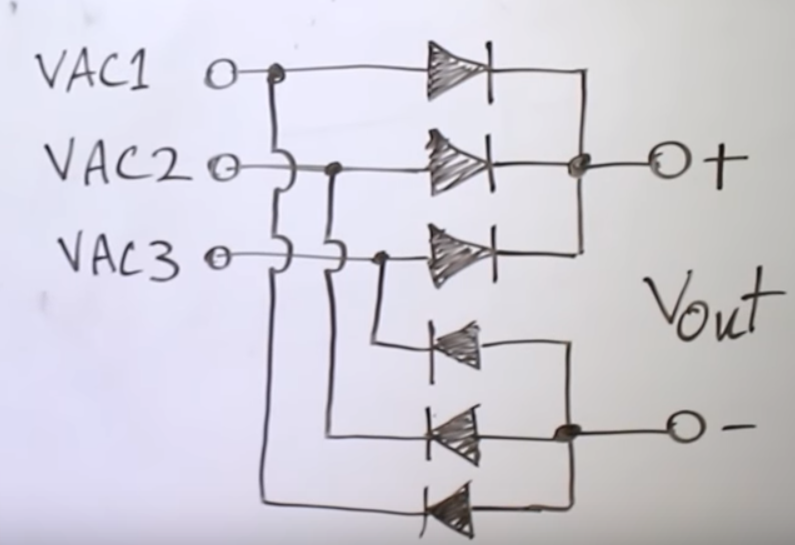 VAC1
VAC2
+
VAC3
Vout
-